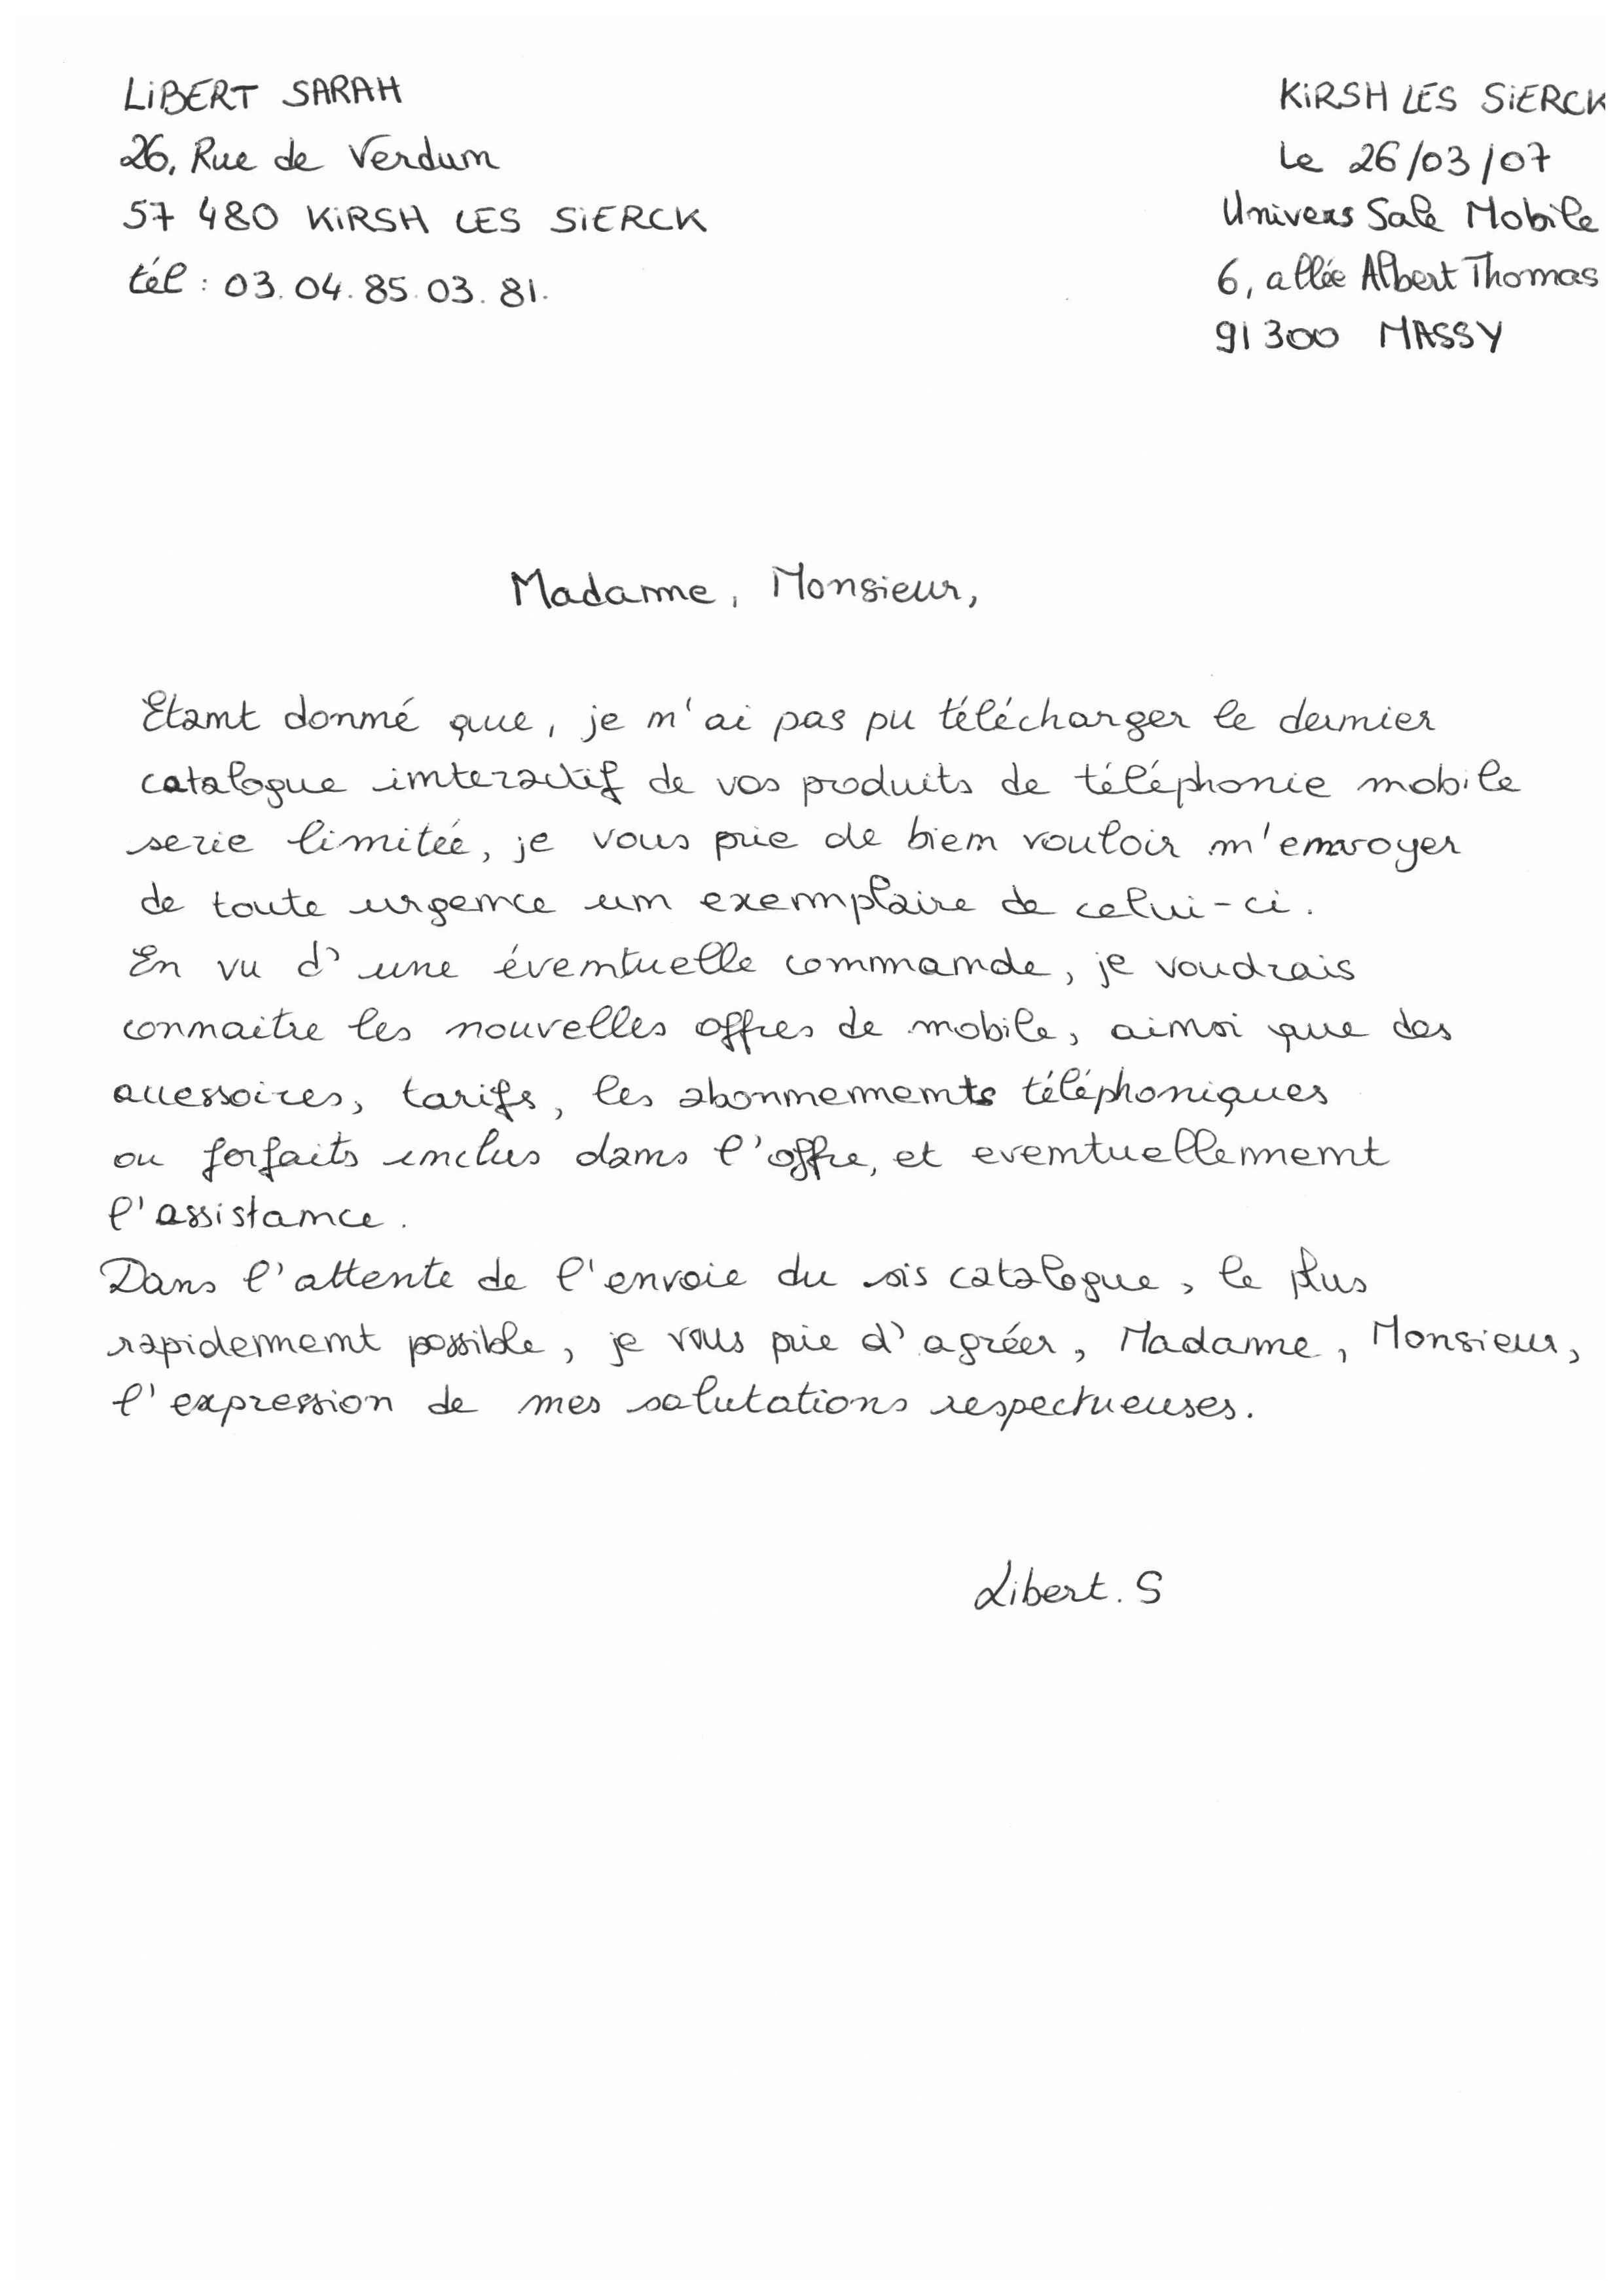 LIBERT SARAH
26, Rue de Verdun
57 480 KIRSH LES SIERCK
tél : 03.04.85.03.81.
KIRSH LES SIERCK
Le 26/03/07
Univers Sale Mobile
6, allée Albert Thomas
91 300 MASSY
Madame, Monsieur,
Etant donné que, je n'ai pas pu télécharger le dernier
catalogue interactif de vos produits de téléphonie mobile
serie limitée, je vous prie de bien vouloir m'envoyer
de toute urgence un exemplaire de celui-ci.
En vu d'une éventuelle commande, je voudrais
connaitre les nouvelles offres de mobile, ainsi que des
accessoires, tarifs, les abonnements téléphoniques
ou forfaits inclus dans l'offre, et eventuellement
l'assistance.
Dans l'attente de l'envoie du sis catalogue, le plus
rapidement possible, je vous prie d'agréer, Madame, Monsieur,
l'expression de mes salutations respectueuses.
Libert. S